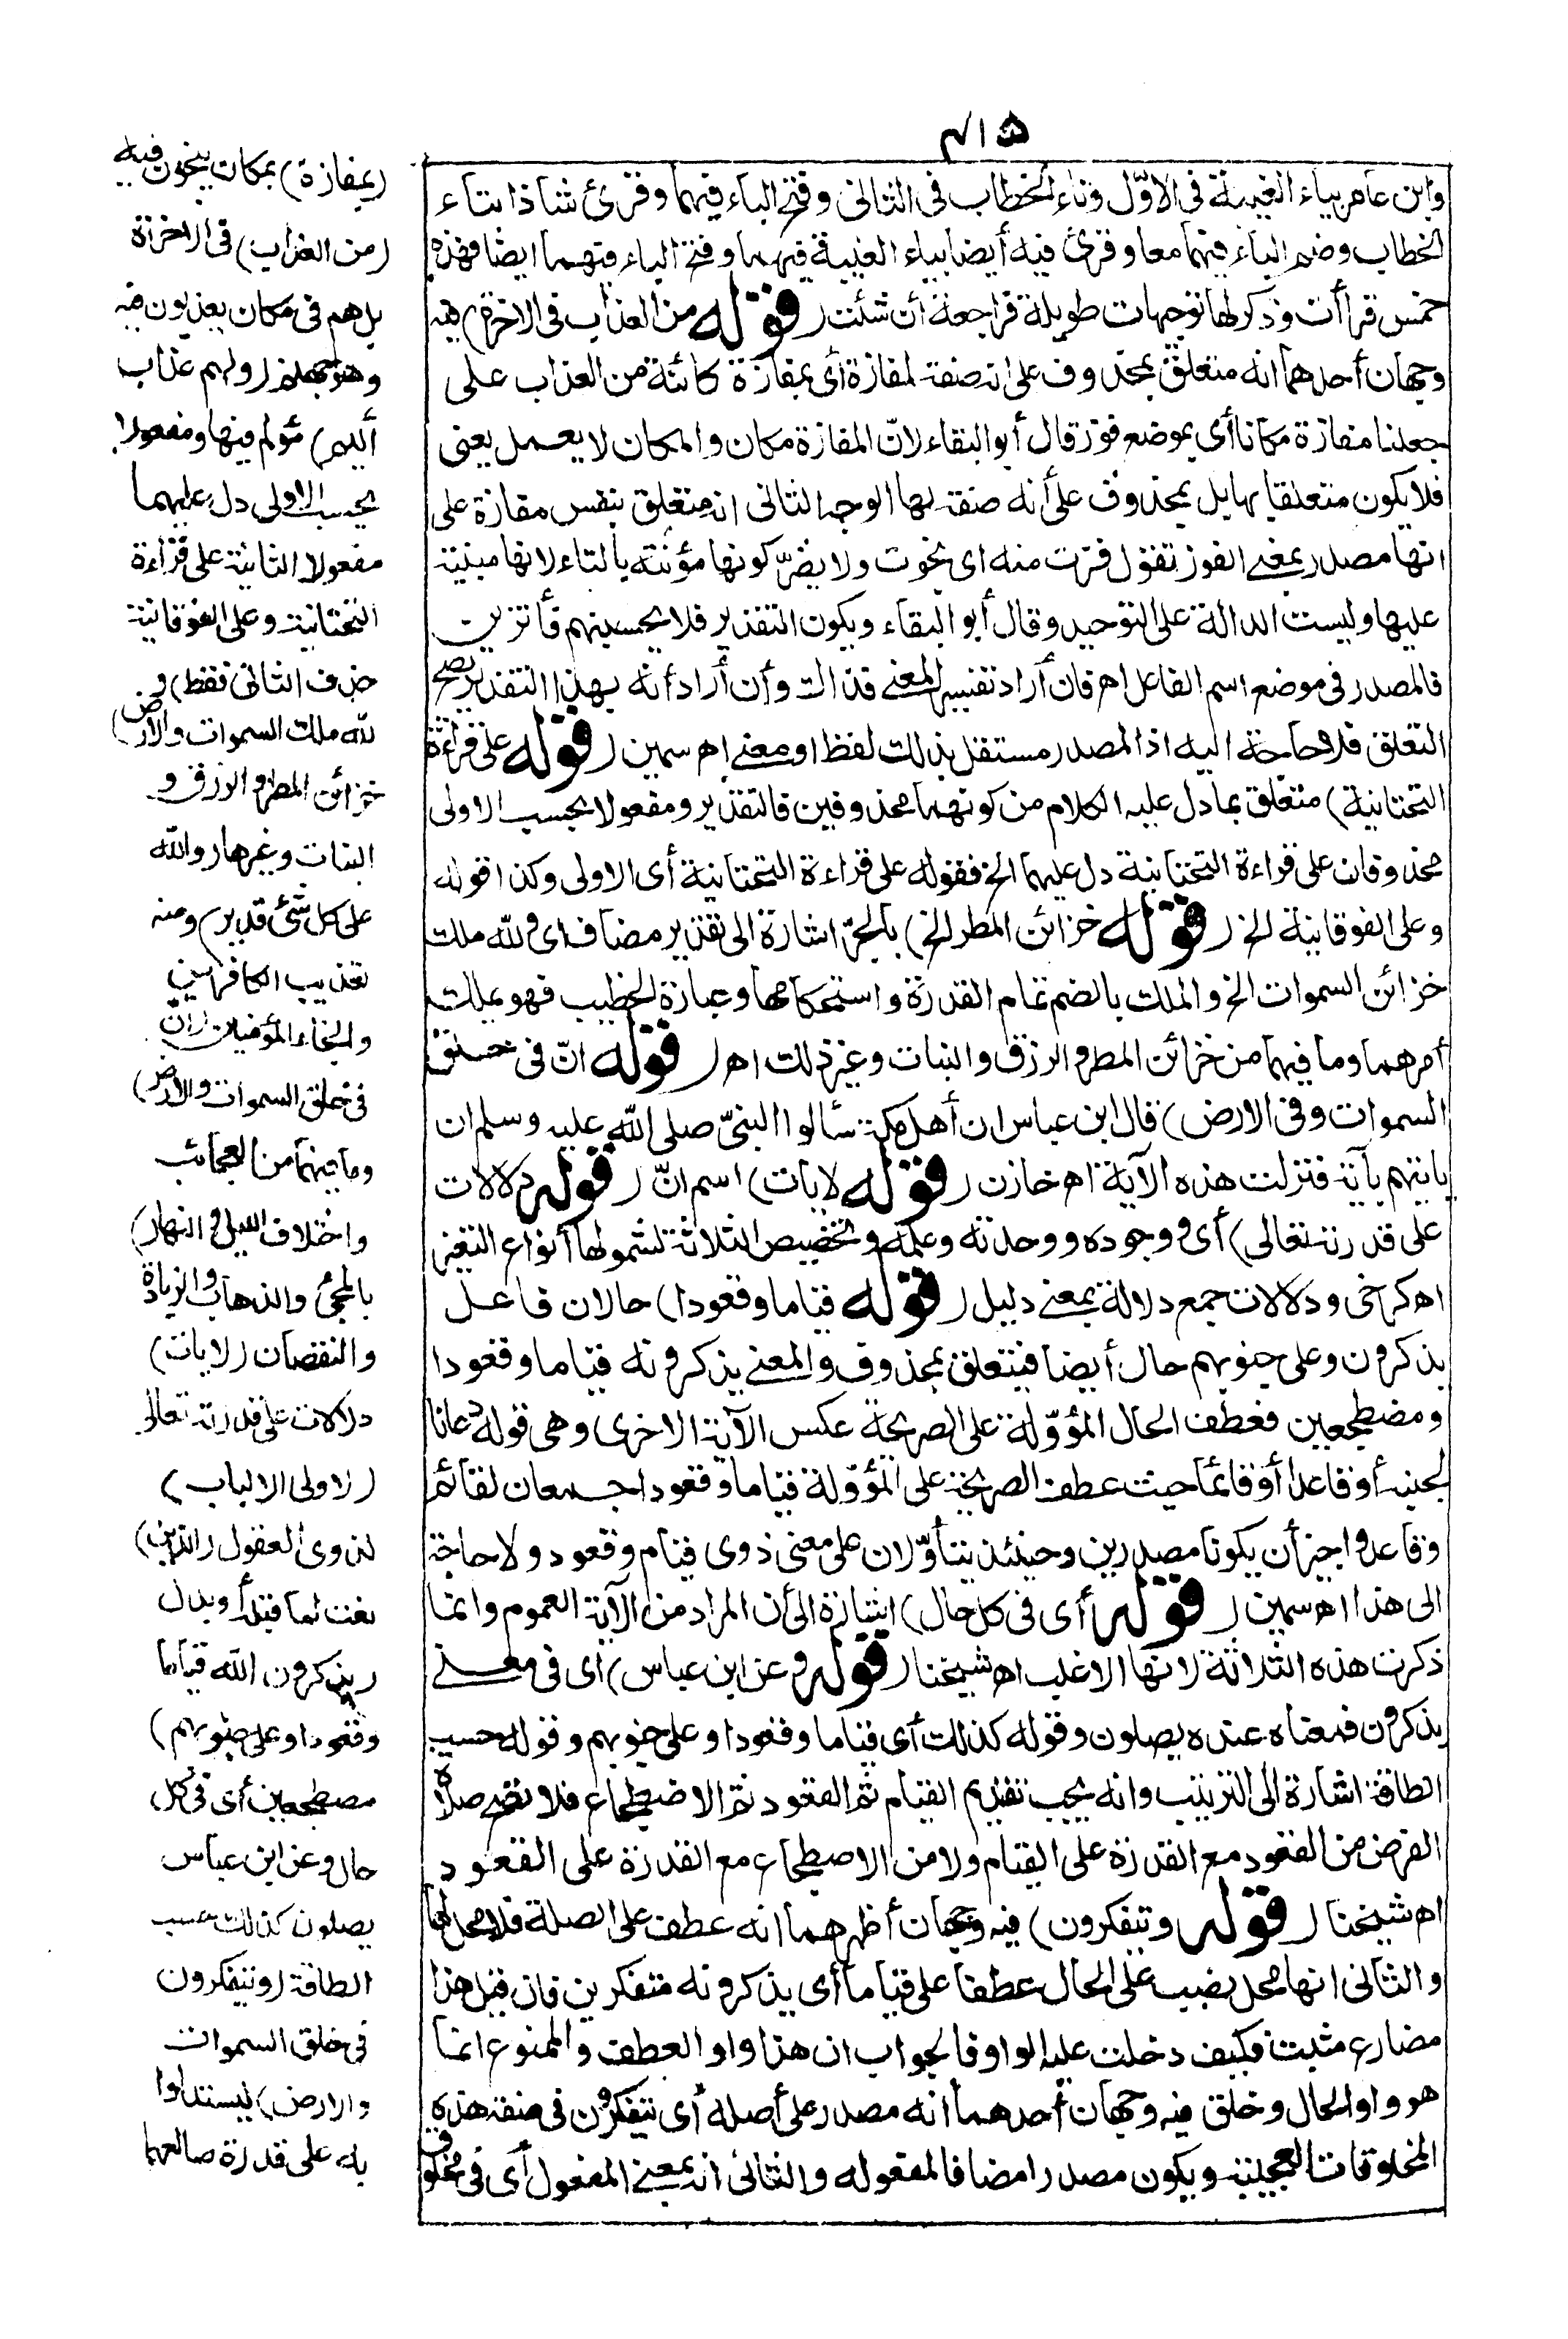 ٤١٥
وابن عامر بياء الغيبة فى الاوّل وتاء الخطاب فى الثانى وفتح الباء فيهما وقرئ شاذا بتاء
الخطاب وضم الباء فيهما معا وقرئ فيه أيضا بياء الغيبة فيهما وفتح الباء فيهما ايضا فهذه
خمس قراآت وذكر لها توجيهات طويلة فراجعه أن شئت (قوله من العذاب فى الاخرة) فيه
وجهان أحدهما انه متعلق بمحذوف على انه صفة لمفازة أى بمفازة كائنة من العذاب على
جعلنا مفازة مكانا أى بموضع فوز قال أبو البقاء لانّ المفازة مكان والمكان لا يعمل يعنى
فلا يكون متعلقا بها بل بمحذوف على أنه صفة لها الوجه الثانى انه متعلق بنفس مفازة على
انها مصدر بمعنى الفوز تقول فزت منه اى نجوت ولا يضرّ كونها مؤنثة بالتاء لانها مبنية
عليها وليست الدالة على التوحيد وقال أبو البقاء ويكون التقدير فلا يحسبنهم فائزين
فالمصدر فى موضع اسم الفاعل اهـ فان أراد تفسير المعنى فذاك وأن أراد أنه بهذا التقدير يصح
التعلق فلا حاجة اليه اذا المصدر مستقل بذلك لفظا او معنى اهـ سمين (قوله على قراءة
التحتانية) متعلق بما دل عليه الكلام من كونهما محذوفين فالتقدير ومفعولا يحسب الاولى
محذوفان على قراءة التحتانية دل عليهما الخ فقوله على قراءة التحتانية أى الاولى وكذا قوله
وعلى الفوقانية الخ (قوله خزائن المطر الخ) بالجرّ اشارة الى تقدير مضاف اى ولله ملك
خزائن السموات الخ والملك بالضم تمام القدرة واستحكامها وعبارة الخطيب فهو يملك
أمرهما وما فيهما من خزائن المطر والرزق والنبات وغير ذلك اهـ (قوله انّ فى خلق
السموات وفى الارض) قال ابن عباس ان أهل مكة سألوا النبىّ صلى الله عليه وسلم ان
ياتيهم بآية فنزلت هذه الآية اهـ خازن (قوله لايات) اسم انّ (قوله دلالات
على قدرته تعالى) أى ووجوده ووحدته وعلمه وتخصيص الثلاثة لشمولها أنواع التغير
اهـ كرخى ودلالات جمع دلالة بمعنى دليل (قوله قياما وقعودا) حالان فاعل
يذكرون وعلى جنوبهم حال أيضا فيتعلق بمحذوف والمعنى يذكرونه قياما وقعودا
ومضطجعين فعطف الحال المؤوّلة على الصريحة عكس الآية الاخرى وهى قوله دعانا
لجنبه أو قاعدا أو قائما حيث عطف الصريحة على المؤوّلة قياما وقعودا جمعان لقائم
وقاعد واجيز أن يكونا مصدرين وحينئذ يتأوّلان على معنى ذوى قيام وقعود ولا حاجة
الى هذا اهـ سمين (قوله أى فى كل حال) اشارة الى أن المراد من الآية العموم وانما
ذكرت هذه الثلاثة لانها الاغلب اهـ شيخنا (قوله وعن ابن عباس) اى فى معنى
يذكرون فمعناه عنده يصلون وقوله كذلك أى قياما وقعودا وعلى جنوبهم وقوله حسب
الطاقة اشارة الى الترتيب وانه يجب تقديم القيام ثم القعود ثم الاضطجاع فلا تصح صلاة
الفرض من القعود مع القدرة على القيام ولا من الاضطجاع مع القدرة على القعود
اهـ شيخنا (قوله ويتفكرون) فيه وجهان أظهرهما انه عطف على الصلة فلا محل لها
والثانى انها محل نصب على الحال عطفا على قياما أى يذكرونه متفكرين فان قيل هذا
مضارع مثبت فكيف دخلت عليه الواو فالجواب ان هذا واو العطف والممنوع انما
هو واو الحال وخلق فيه وجهان أحدهما انه مصدر على أصله أى يتفكرون فى صنعة هذه
المخلوقات العجيبة ويكون مصدرا مضافا لمفعوله والثانى انه بمعنى المفعول أى فى مخلوق
(بمفازة) بمكان ينجون فيه
(من العذاب) فى الاخرة
بل هم فى مكان يعذبون فيه
وهو جهنم (ولهم عذاب
أليم) مؤلم فيها ومفعولا
يحسب الاولى دل عليهما
مفعولا الثانية على قراءة
التحتانية وعلى الفوقانية
حذف الثانى فقط (و
لله ملك السموات والارض)
خزائن المطر والرزق و
النبات وغيرها (والله
على كل شئ قدير) ومنه
تعذيب الكافرين
وانجاء المؤمنين (ان
فى خلق السموات والارض)
وما فيهما من العجائب
واختلاف الليل والنهار)
بالمجئ والذهاب والزيادة
والنقصان (لايات)
دلالات على قدرته تعالى
(لاولى الالباب)
لذوى العقول (الذين)
نعت لما قبله أو بدل
(يذكرون الله قياما
وقعودا وعلى جنوبهم)
مضطجعين أى فى كل
حال وعن ابن عباس
يصلون كذلك حسب
الطاقة (ويتفكرون
فى خلق السموات
والارض) ليستدلوا
به على قدرة صانعهما